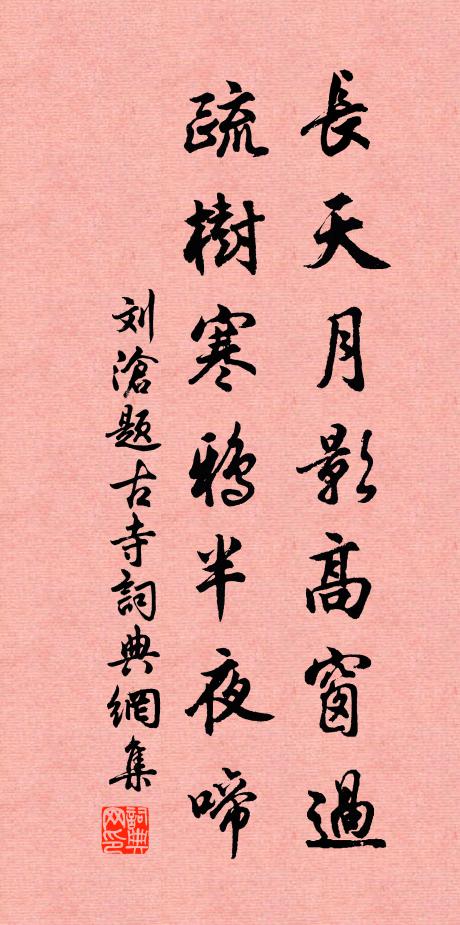 長天月影高窗過
疏樹寒鴉半夜啼
刘滄题古寺詞典網集
詞典网印